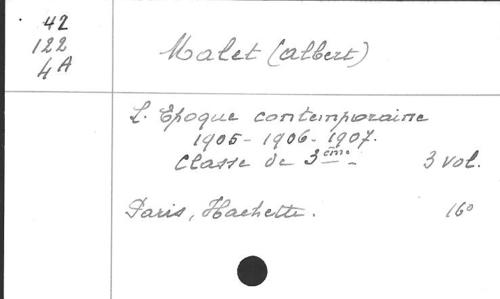 42
122
4A
Malet (Albert)
L'Epoque contemporaine
1905 - 1906 - 1907.
Classe de 3ème - 3 vol.
Paris, Hachette. 16°